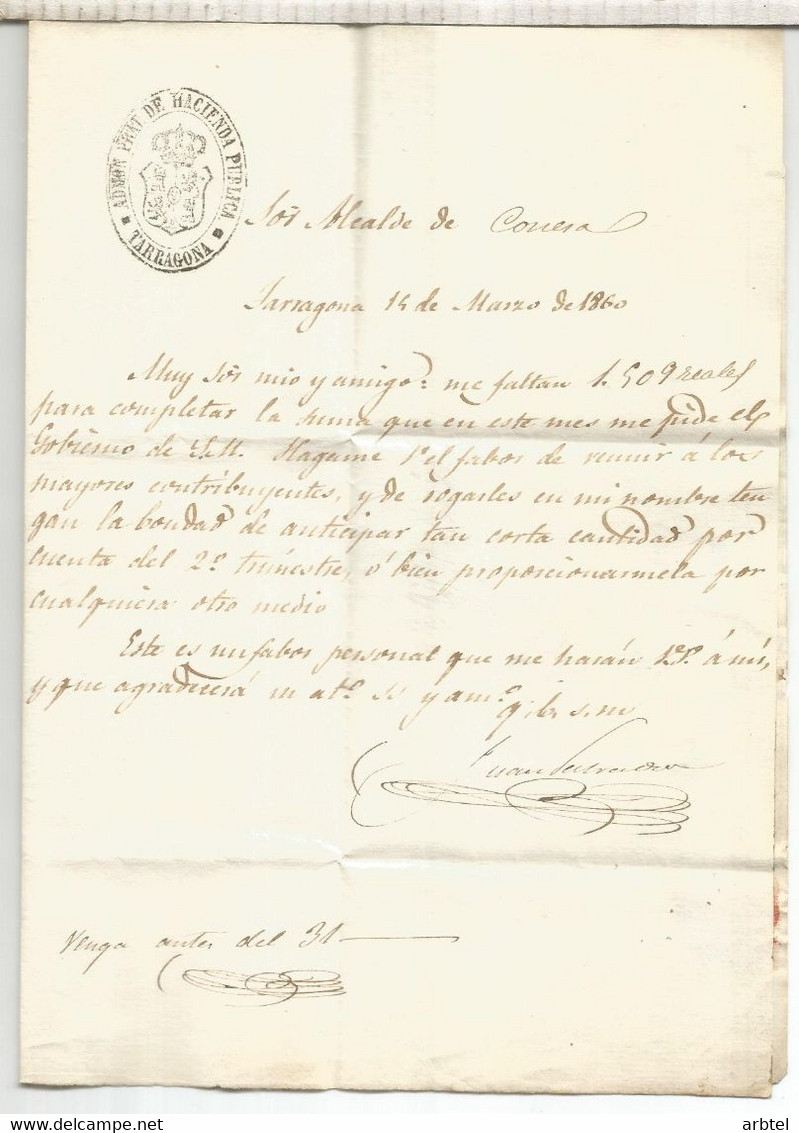 ADMON PRAL DE HACIENDA PUBLICA
TARRAGONA
Sor Alcalde de Conesa
Tarragona 15 de Marzo de 1860
Muy Sor mio y amigo: me faltan 1.509 reales
para completar la suma que en este mes me pide el
Gobierno de S.M. Hagame V. el fabor de reunir á los
mayores contribuyentes, y de rogarles en mi nombre ten
gan la bondad de anticipar tan corta cantidad por
cuenta del 2.º trimestre, ó bien proporcionarmela por
cualquiera otro medio
Este es un fabor personal que me harán V.S. á mi,
y que agradecerá su at.º S. y am.º
q. b. s. m
Juan
Venga antes del 31
arbtel